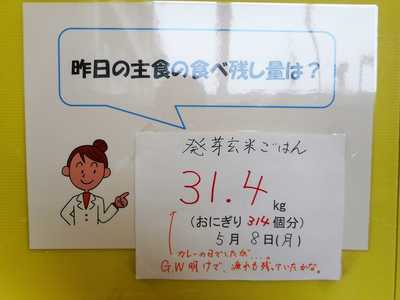 昨日の主食の食べ残し量は？
発芽玄米ごはん
31.4 kg
(おにぎり 314 個分)
5月 8日(月)
カレーの日でしたが....。
G.W明けで、疲れも残っていたかな。